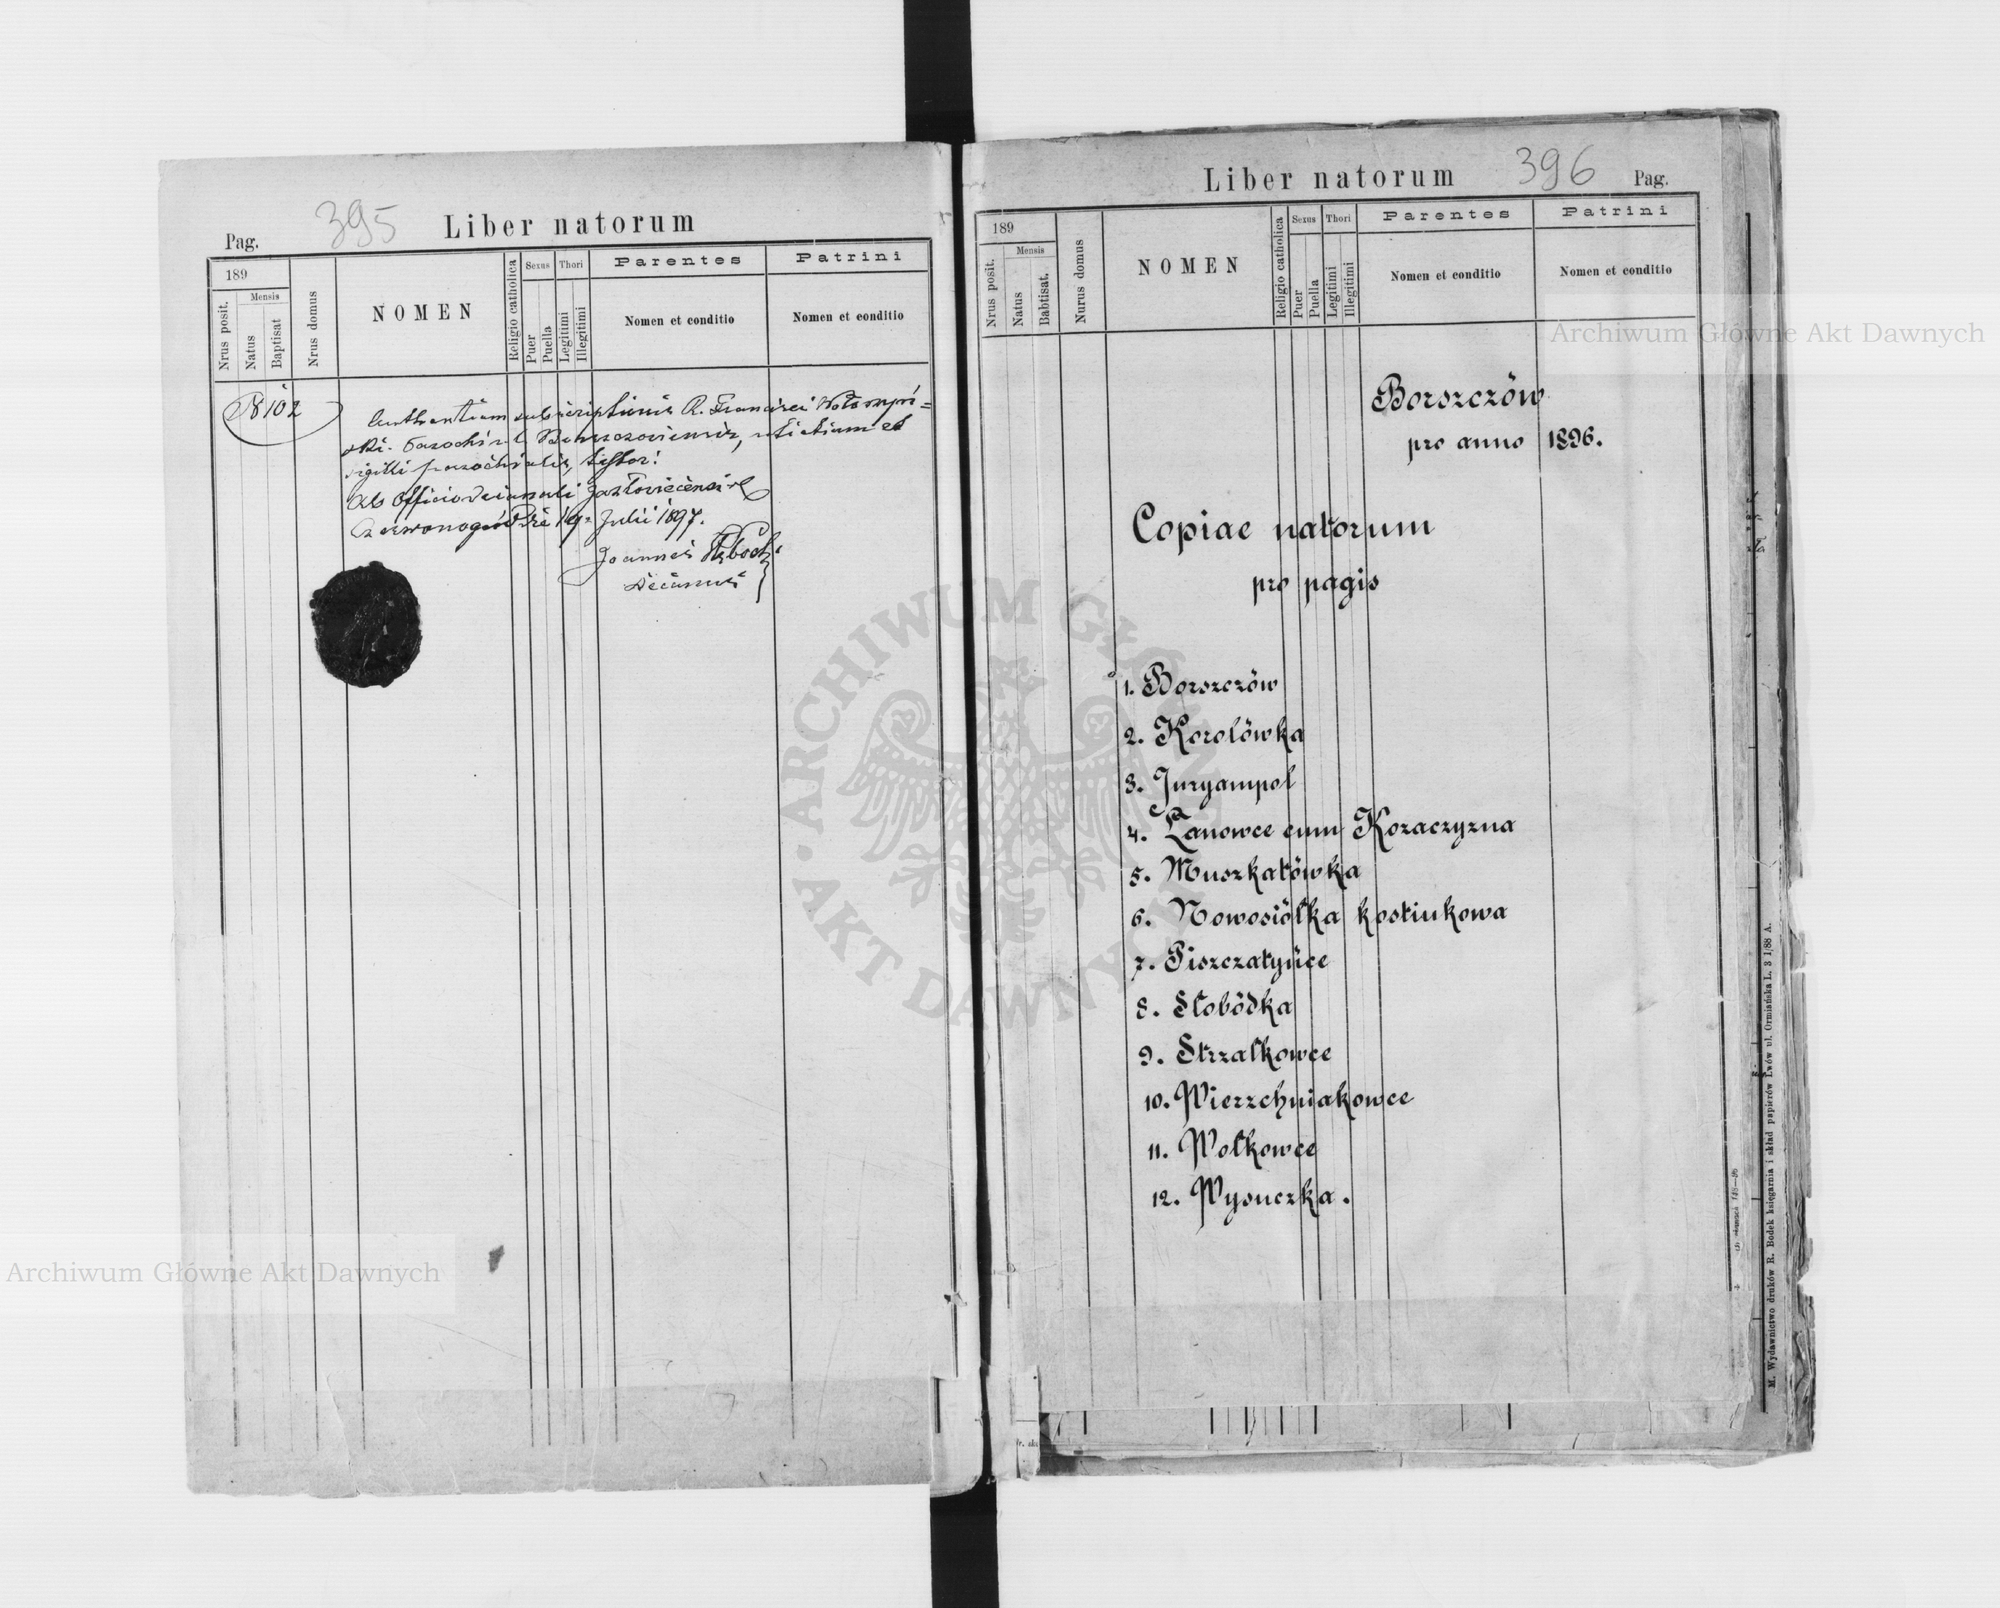 Pag.
395
Liber natorum
189
Nrus posit.
Mensis
Natus
Baptisat
Nrus domus
NOMEN
Religio catholica
Sexus
Puer
Puella
Thori
Legitimi
Illegitimi
Parentes
Nomen et conditio
Patrini
Nomen et conditio
N 102
subscriptionis R. Francisci
sigilli parochialis, testor!
Ab Officio decanali Jazłoviecensi
Czerwonogród die 19 Julii 1897.
Joannes
Decanus
Liber natorum
396
Pag.
189
Nrus posit.
Mensis
Natus
Babtisat.
Nurus domus
NOMEN
Religio catholica
Sexus
Puer
Puella
Thori
Legitimi
Illegitimi
Parentes
Nomen et conditio
Patrini
Nomen et conditio
Borszczów
pro anno 1896.
Copiae natorum
pro pagis
1. Borszczów
2. Korolówka
3. Juryampol
4. Łanowce cum Kozaczyzna
5. Muszkatówka
6. Nowosiółka kostiukowa
7. Piszczatyńce
8. Słobódka
9. Strzałkowce
10. Wierzchniakowce
11. Wołkowce
12. Wysuczka.
M. Wydawnictwo druków R. Bodek księgarnia i skład papierów Lwów ul. Ormiańska L. 3 1/88 A.
Archiwum Główne Akt Dawnych
Archiwum Główne Akt Dawnych
ARCHIWUM GŁÓWNE AKT DAWNYCH